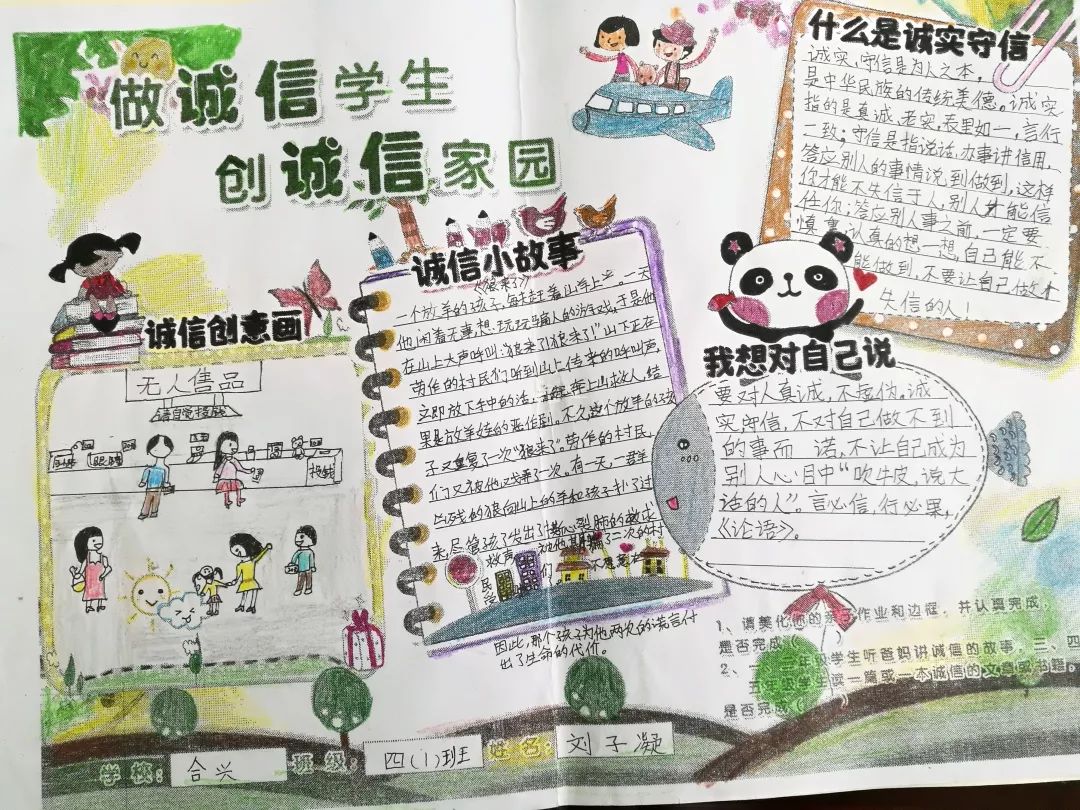 做诚信学生
创诚信家园
诚信创意画
无人售品
请自觉投放
诚信小故事
《狼来了》
一个放羊的孩子,每天赶着山羊上 一天
他闲着无事,想玩玩骗人的游戏,于是他
在山上大声呼叫:"狼来了!狼来了!"山下正在
劳作的村民们听到山上传来的呼叫声,
立即放下手中的活, 奔上山救人,结
果是放羊娃的恶作剧。不久这个放羊的孩
子又重复了一次"狼来了"。劳作的村民
们又被他戏弄了一次。有一天,一群
凶残的狼向山上的羊和孩子扑了过
来尽管孩子发出了撕心裂肺的救
救声 被他 骗了二次的村
民 们 不愿意
因此,那个孩子为他两次的谎言付
出了生命的代价。
什么是诚实守信
诚实、守信是为人之本,
是中华民族的传统美德。诚实
指的是真诚、老实,表里如一,言行
一致;守信是指说话、办事讲信用,
答应别人的事情说到做到,这样
你才能不失信于人,别人才能信
任你;答应别人事之前,一定要
慎重、认真的想一想,自己能不
能做到,不要让自己做个
失信的人!
我想对自己说
要对人真诚,不虚伪。诚
实守信,不对自己做不到
的事而 诺,不让自己成为
别人心目中"吹牛皮,说大
话的人"。言必信,行必果,
《论语》。
1、请美化您的亲子作业和边框,并认真完成,
是否完成( )
2、一、二年级学生听爸妈讲诚信的故事,三、四
五年级学生读一篇或一本诚信的文章或书籍。
是否完成( )
学校:合兴 班级:四(1)班 姓名:刘子凝